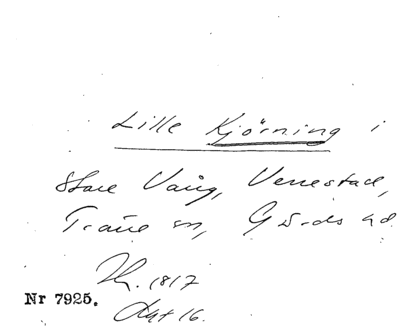 Lille Kjörning i
Stare Vång, Venestad,
Träne sn, Gärds hd
1817
Nr 7925.
Akt 16.